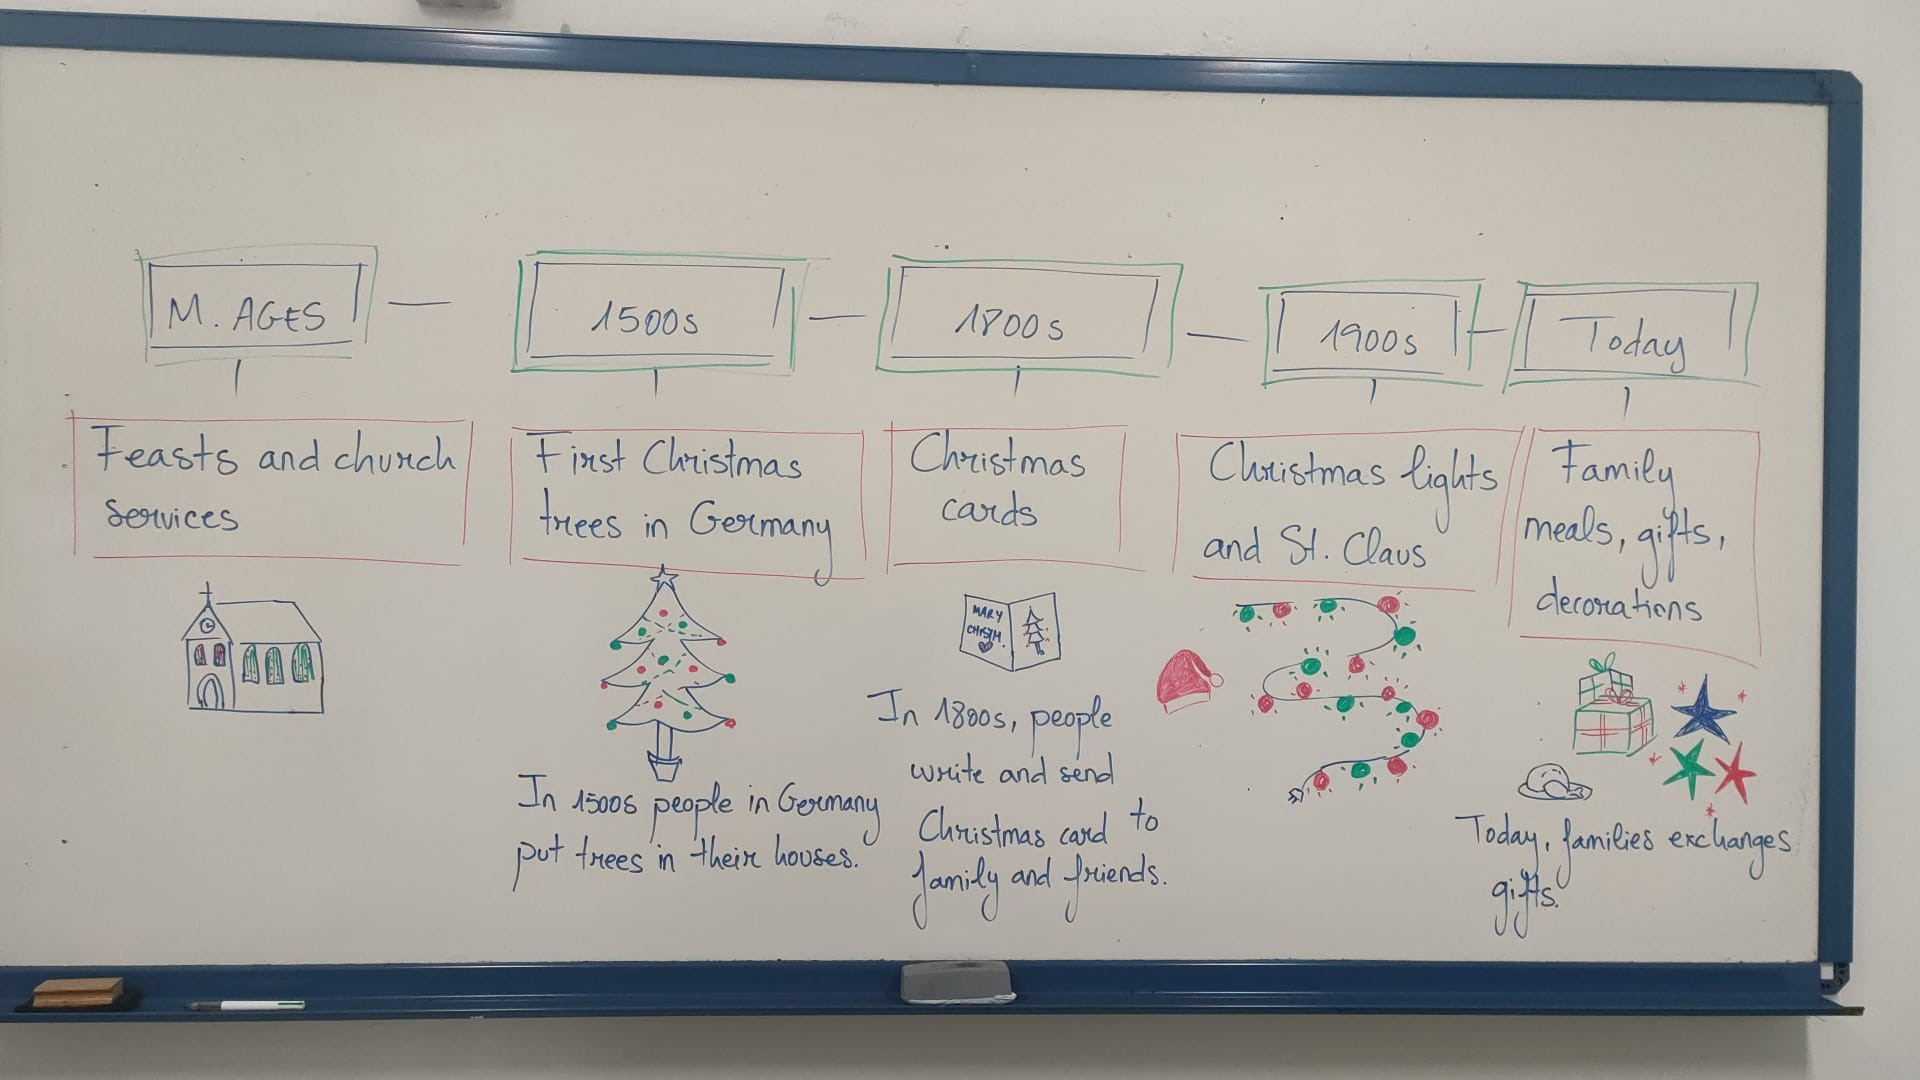 M. AGES
1500s
1800s
1900s
Today
Feasts and church
services
First Christmas
trees in Germany
Christmas
cards
Christmas lights
and St. Claus
Family
meals, gifts,
decorations
MARY
CHRISTM.
In 1500s people in Germany
put trees in their houses.
In 1800s, people
write and send
Christmas card to
family and friends.
Today, families exchanges
gifts.